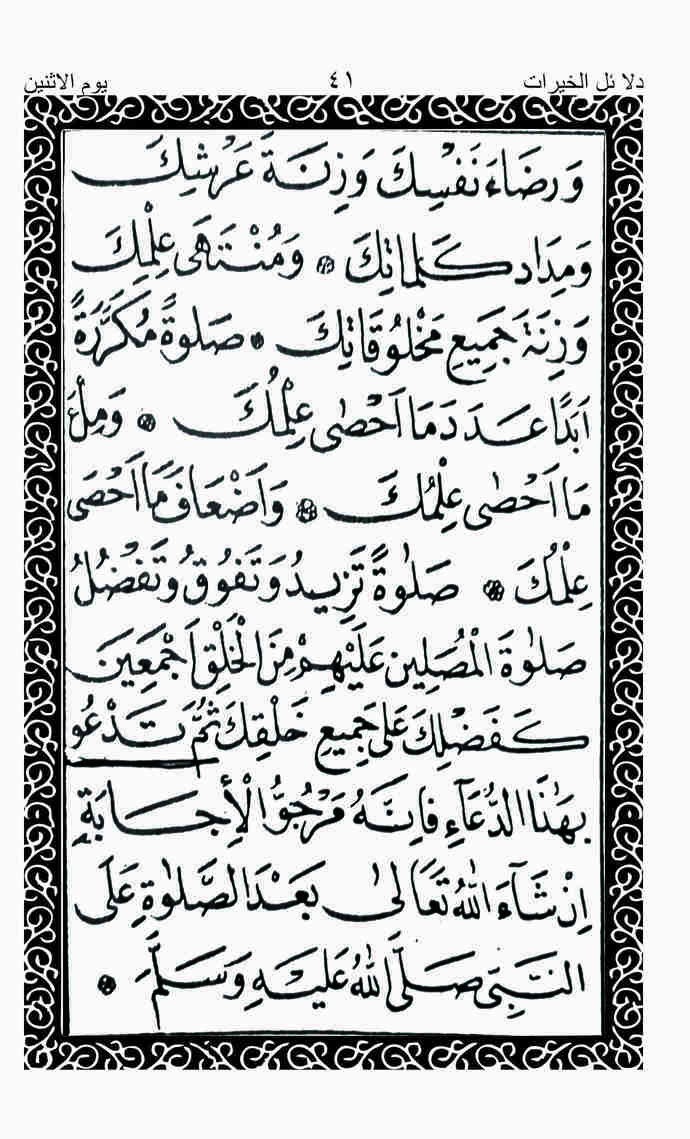 دلا ئل الخيرات ٤١ يوم الاثنين
وَرِضَاءَ نَفْسِكَ وَزِنَةَ عَرْشِكَ
وَمِدَادِ كَلِمَاتِكَ وَمُنْتَهَى عِلْمِكَ
وَزِنَةَ جَمِيعِ مَخْلُوقَاتِكَ صَلٰوةً مُكَرَّرَةً
اَبَدًا عَدَدَ مَا اَحْصٰى عِلْمُكَ وَمِلْءَ
مَا اَحْصٰى عِلْمُكَ وَاَضْعَافَ مَا اَحْصَى
عِلْمُكَ صَلٰوةً تَزِيدُ وَتَفُوقُ وَتَفْضُلُ
صَلٰوةَ الْمُصَلِينَ عَلَيْهِمْ مِنَ الْخَلْقِ اَجْمَعِينَ
كَفَضْلِكَ عَلَى جَمِيعِ خَلْقِكَ ثُمَّ تَدْعُو
بِهٰذَا الدُّعَآءِ فَاِنَّهُ مَرْجُوُّ الْأِجَابَةِ
اِنْ شَآءَ اللّٰهُ تَعَالىٰ بَعْدَ الصَّلٰوةِ عَلَى
النَّبِىِّ صَلَّى اللّٰهُ عَلَيْهِ وَسَلَّمَ